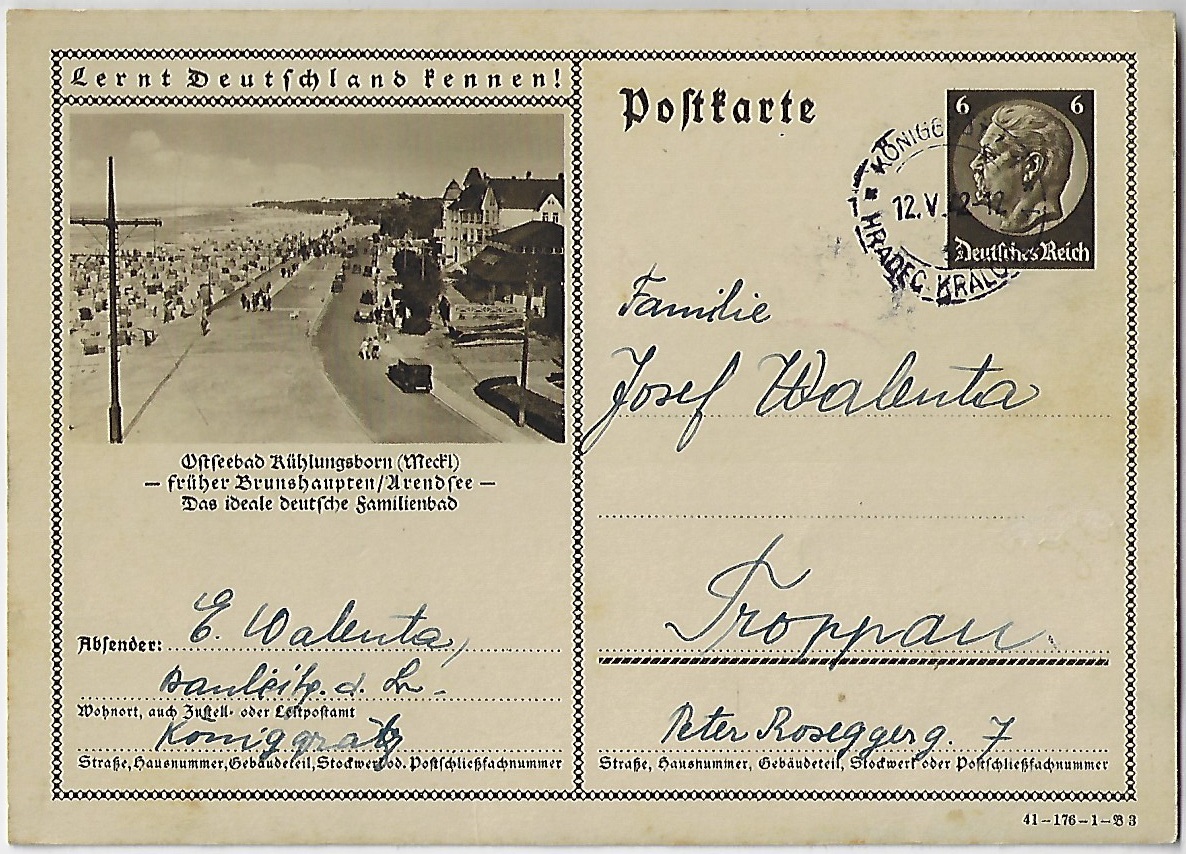 Lernt Deutschland kennen!
Ostseebad Kühlungsborn (Meckl)
— früher Brunshaupten/Arendsee —
Das ideale deutsche Familienbad
Absender: E. Walenta,
Bauleitg. d. Lw.
Wohnort, auch Zustell- oder Leitpostamt
Königgrätz
Straße, Hausnummer, Gebäudeteil, Stockwerk od. Postschließfachnummer
Postkarte
6 6
Deutsches Reich
KÖNIGG
12.V. 42-12
HRADEC KRÁLO
1
Familie
Josef Walenta
Troppau.
Peter Roseggerg. 7
Straße, Hausnummer, Gebäudeteil, Stockwerk oder Postschließfachnummer
41-176-1-B 3